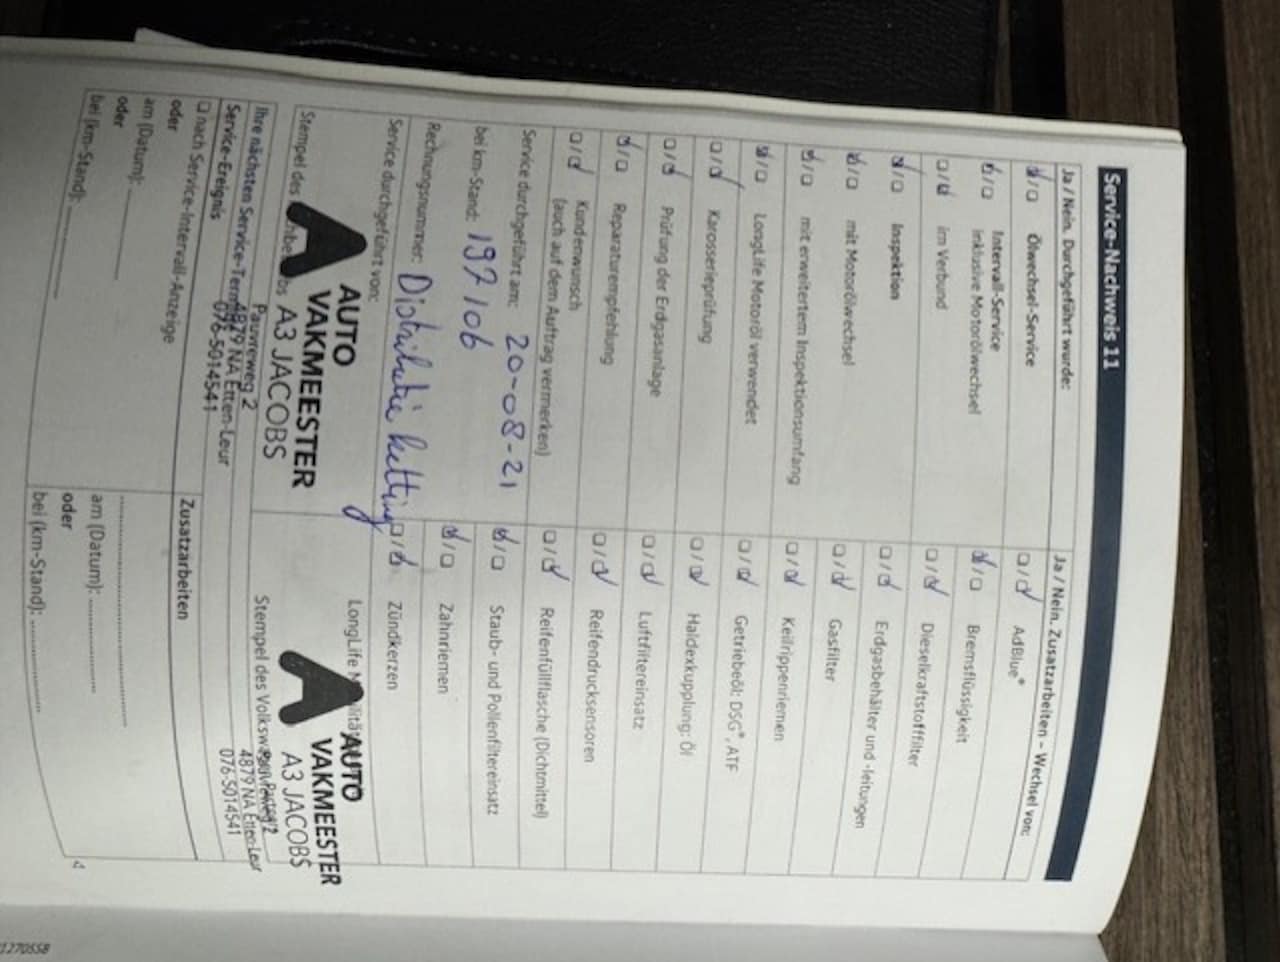 Service-Nachweis 11
Ja / Nein. Durchgeführt wurde:
Ölwechsel-Service
Intervall-Service
inklusive Motorölwechsel
im Verbund
Inspektion
mit Motorölwechsel
mit erweitertem Inspektionsumfang
LongLife Motoröl verwendet
Karosserieprüfung
Prüfung der Erdgasanlage
Reparaturempfehlung
Kundenwunsch
(auch auf dem Auftrag vermerken)
Service durchgeführt am: 20-08-21
bei km-Stand: 197106
Rechnungsnummer: Distributie ketting
Service durchgeführt von:
AUTO
VAKMEESTER
A3 JACOBS
Pauvreweg 2
4879 NA Etten-Leur
076-5014541
Stempel des
Ihre nächsten Service-Termine
Service-Ereignis
nach Service-Intervall-Anzeige
oder
am (Datum):
oder
bei (km-Stand):
Ja / Nein. Zusatzarbeiten – Wechsel von:
AdBlue®
Bremsflüssigkeit
Dieselkraftstofffilter
Erdgasbehälter und -leitungen
Gasfilter
Keilrippenriemen
Getriebeöl: DSG®, ATF
Haldexkupplung: Öl
Luftfiltereinsatz
Reifendrucksensoren
Reifenfüllflasche (Dichtmittel)
Staub- und Pollenfiltereinsatz
Zahnriemen
Zündkerzen
LongLife
AUTO
VAKMEESTER
A3 JACOBS
4879 NA Etten-Leur
076-5014541
Stempel des
Zusatzarbeiten
am (Datum):
oder
bei (km-Stand):